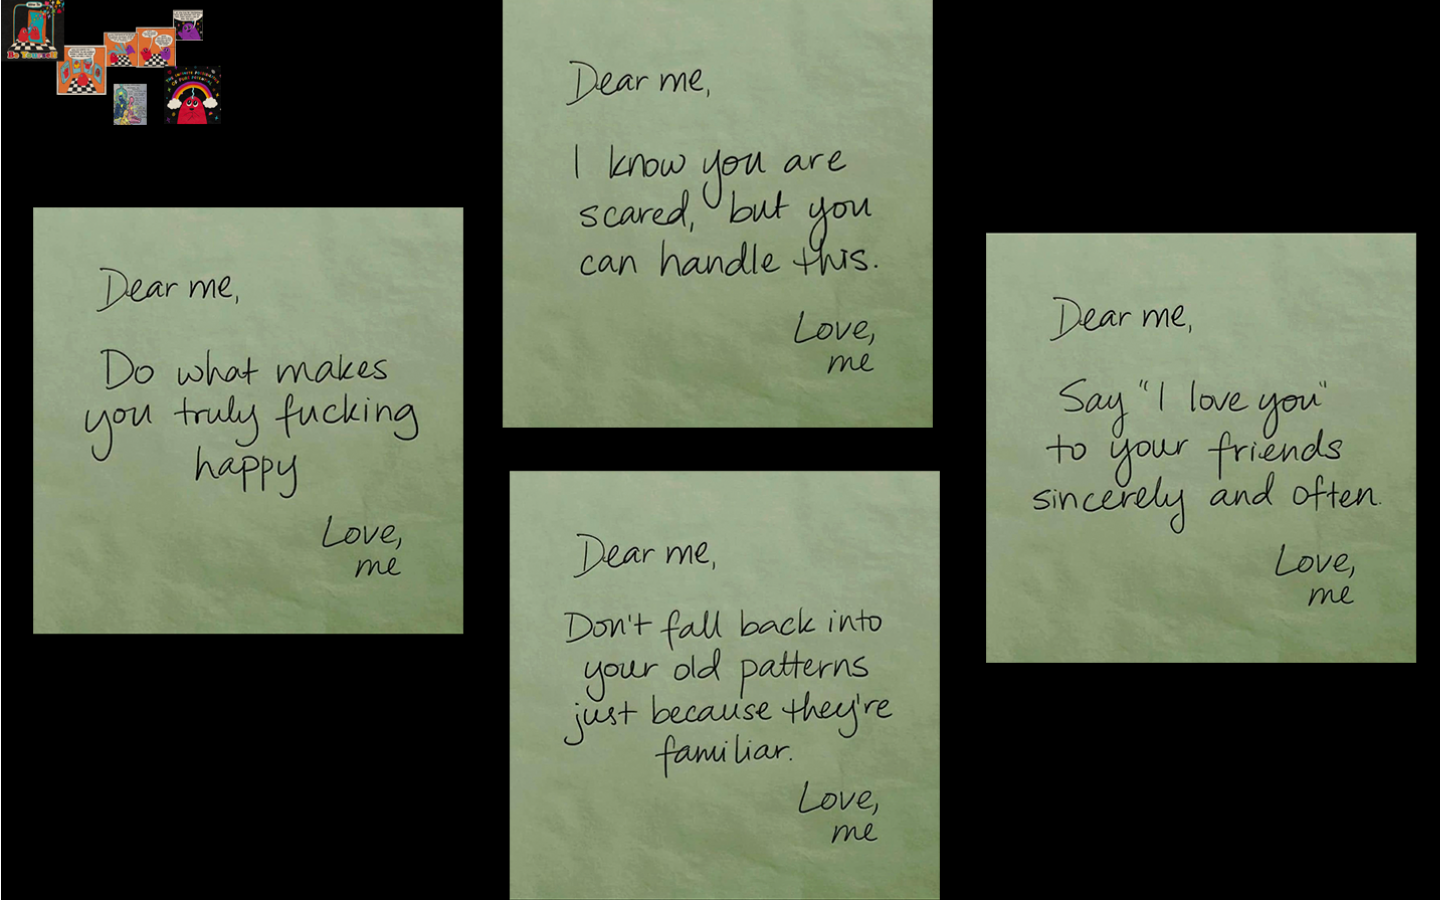 Be Yourself
Dear me,
I know you are
scared, but you
can handle this.
Love,
me
Dear me,
Do what makes
you truly fucking
happy
Love,
me
Dear me,
Say "I love you"
to your friends
sincerely and often.
Love,
me
Dear me,
Don't fall back into
your old patterns
just because they're
familiar.
Love,
me